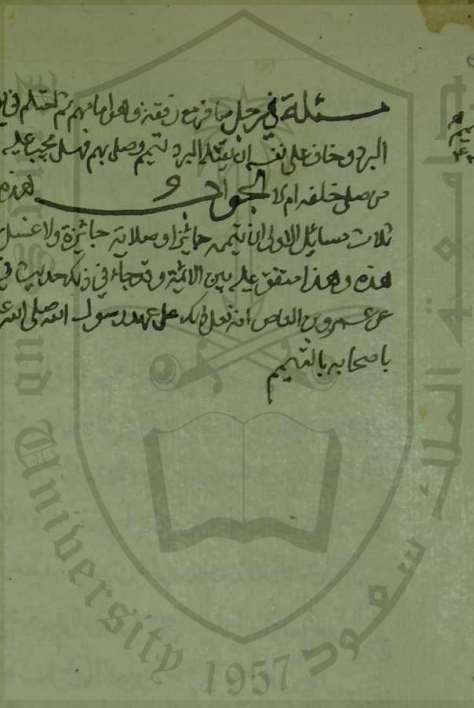 مسئلة في رجل سافر مع رفقة وهو امامهم ثم احتلم في يو
البرد وخاف على نفسه ان يقتله البرد لتيمم وصلى بهم فهل يجب عليه
من صلى خلفه ام لا الجواب هذه
ثلاث مسائل الاولى ان تيممه جائز وصلاته جائزة ولا غسل
هذه وهذا متفق عليه بين الائمة وقد جاء في ذلك حديث في
عن عمرو بن العاص انه فعل ذلك على عهد رسول الله صلى الله عل
باصحابه بالتيمم
جامعة الملك سعود
King Saud University
1957